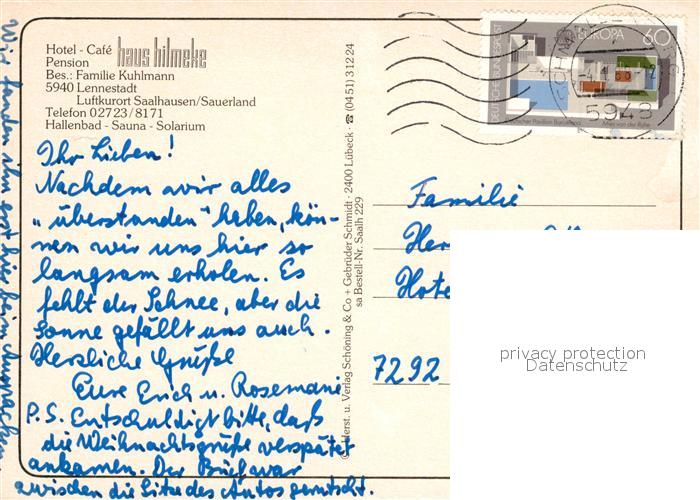 Hotel - Café haus hilmeke
Pension
Bes.: Familie Kuhlmann
5940 Lennestadt
Luftkurort Saalhausen/Sauerland
Telefon 02723/8171
Hallenbad - Sauna - Solarium
Ihr Lieben!
Nachdem wir alles
„überstanden" haben, kön-
nen wir uns hier so
langsam erholen. Es
fehlt der Schnee, aber die
Sonne gefällt uns auch.
Herzliche Grüße
Eure Erich u. Rosemarie
P.S. Entschuldigt bitte, daß
die Weihnachtsgrüße verspätet
ankamen. Der Brief war
zwischen die Sitze des Autos gerutscht.
Wir fanden ihn erst hier beim Auspacken.
Herst. u. Verlag Schöning & Co + Gebrüder Schmidt · 2400 Lübeck · ☎ (0451) 3 12 24
sa Bestell-Nr. Saalh 229
DEUTSCHE BUNDESPOST
EUROPA 60
Pavillon Barcelona
Mies van der Rohe
5943
Familie
Her
Hote
7292
privacy protection
Datenschutz